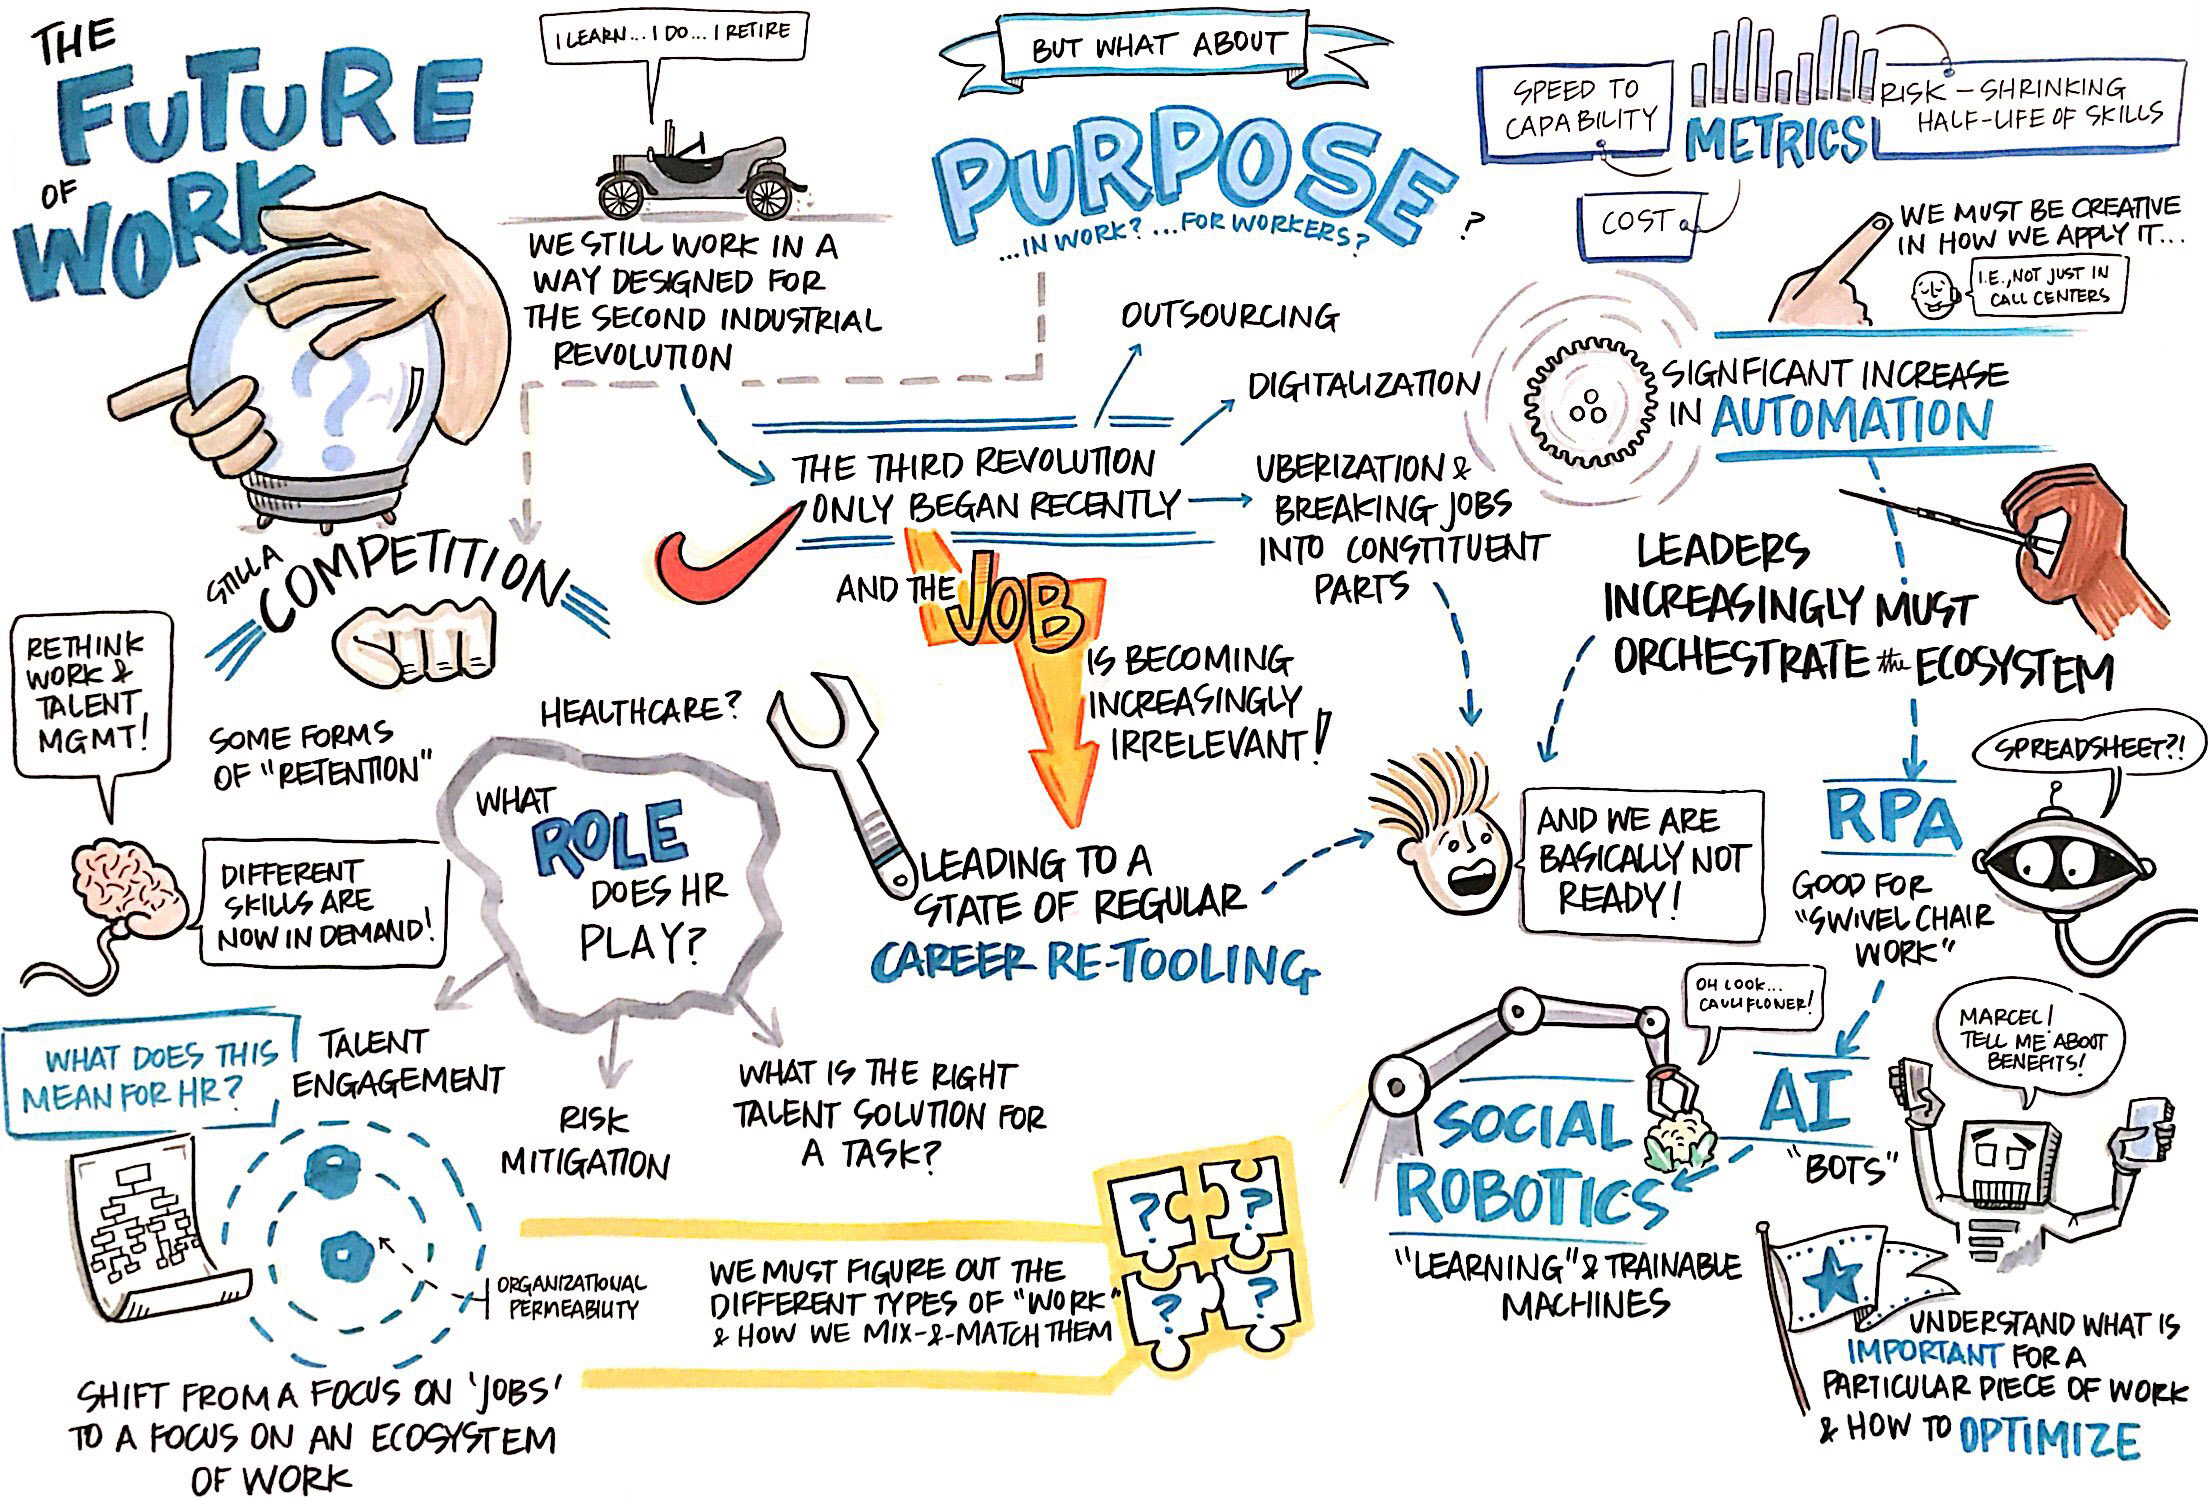 THE
FUTURE
OF
WORK
I LEARN... I DO... I RETIRE
WE STILL WORK IN A
WAY DESIGNED FOR
THE SECOND INDUSTRIAL
REVOLUTION
BUT WHAT ABOUT
PURPOSE
...IN WORK? ...FOR WORKERS?
?
SPEED TO
CAPABILITY
METRICS
RISK – SHRINKING
HALF-LIFE OF SKILLS
COST
WE MUST BE CREATIVE
IN HOW WE APPLY IT...
I.E., NOT JUST IN
CALL CENTERS
SIGNFICANT INCREASE
IN AUTOMATION
OUTSOURCING
DIGITALIZATION
THE THIRD REVOLUTION
ONLY BEGAN RECENTLY
UBERIZATION &
BREAKING JOBS
INTO CONSTITUENT
PARTS
AND THE JOB
IS BECOMING
INCREASINGLY
IRRELEVANT!
LEADERS
INCREASINGLY MUST
ORCHESTRATE the ECOSYSTEM
?
STILL A
COMPETITION
RETHINK
WORK &
TALENT
MGMT!
SOME FORMS
OF "RETENTION"
HEALTHCARE?
DIFFERENT
SKILLS ARE
NOW IN DEMAND!
WHAT
ROLE
DOES HR
PLAY?
LEADING TO A
STATE OF REGULAR
CAREER RE-TOOLING
AND WE ARE
BASICALLY NOT
READY!
RPA
SPREADSHEET?!
GOOD FOR
"SWIVEL CHAIR
WORK"
WHAT DOES THIS
MEAN FOR HR?
TALENT
ENGAGEMENT
RISK
MITIGATION
WHAT IS THE RIGHT
TALENT SOLUTION FOR
A TASK?
OH LOOK...
CAULIFLOWER!
MARCEL!
TELL ME ABOUT
BENEFITS!
AI
"BOTS"
SOCIAL
ROBOTICS
"LEARNING" & TRAINABLE
MACHINES
ORGANIZATIONAL
PERMEABILITY
WE MUST FIGURE OUT THE
DIFFERENT TYPES OF "WORK"
& HOW WE MIX-&-MATCH THEM
? ?
? ?
SHIFT FROM A FOCUS ON 'JOBS'
TO A FOCUS ON AN ECOSYSTEM
OF WORK
UNDERSTAND WHAT IS
IMPORTANT FOR A
PARTICULAR PIECE OF WORK
& HOW TO OPTIMIZE